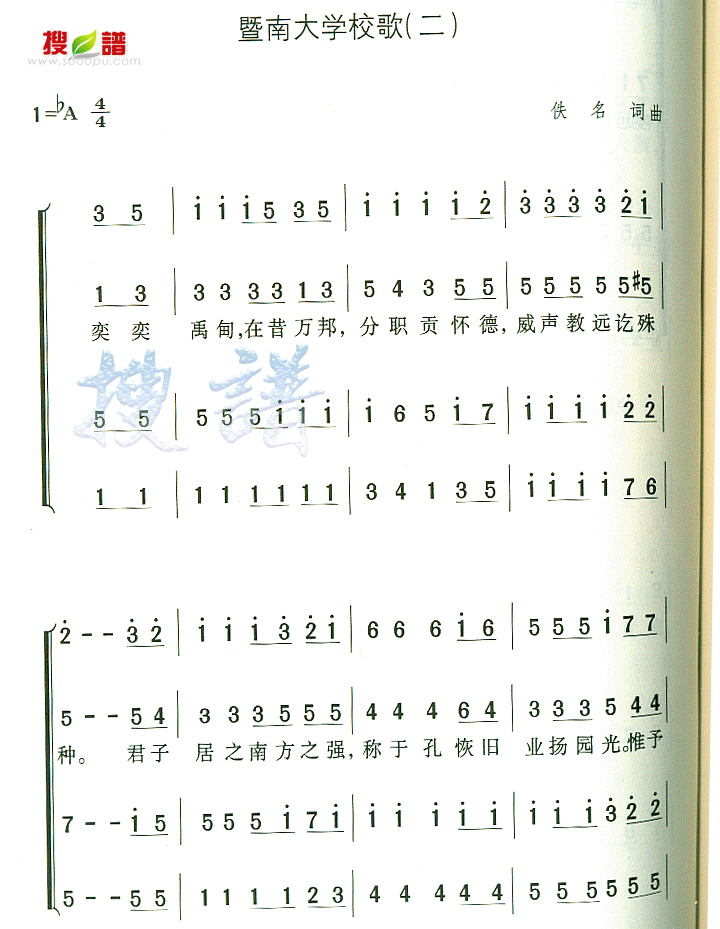 暨南大学校歌(二)
搜 譜
www.sooopu.com
1=♭A 4/4
佚 名 词曲
3 5 | i i i 5 3 5 | i i i i 2̇ | 3̇ 3̇ 3̇ 3̇ 2̇ i |
1 3 | 3 3 3 3 1 3 | 5 4 3 5 5 | 5 5 5 5 5 #5 |
奕 奕 禹甸,在昔万邦, 分职贡怀德, 威声教远讫殊
搜 譜
5 5 | 5 5 5 i i i | i 6 5 i 7 | i i i i 2̇ 2̇ |
1 1 | 1 1 1 1 1 1 | 3 4 1 3 5 | i i i i 7 6 |
2̇ - - 3̇ 2̇ | i i i 3̇ 2̇ i | 6 6 6 i 6 | 5 5 5 i 7 7 |
5 - - 5 4 | 3 3 3 5 5 5 | 4 4 4 6 4 | 3 3 3 5 4 4 |
种。 君子 居之南方之强, 称于孔恢旧 业扬园光。惟予
7 - - i 5 | 5 5 5 i 7 i | i i i i i | i i i 3̇ 2̇ 2̇ |
5 - - 5 5 | 1 1 1 1 2 3 | 4 4 4 4 4 | 5 5 5 5 5 5 |